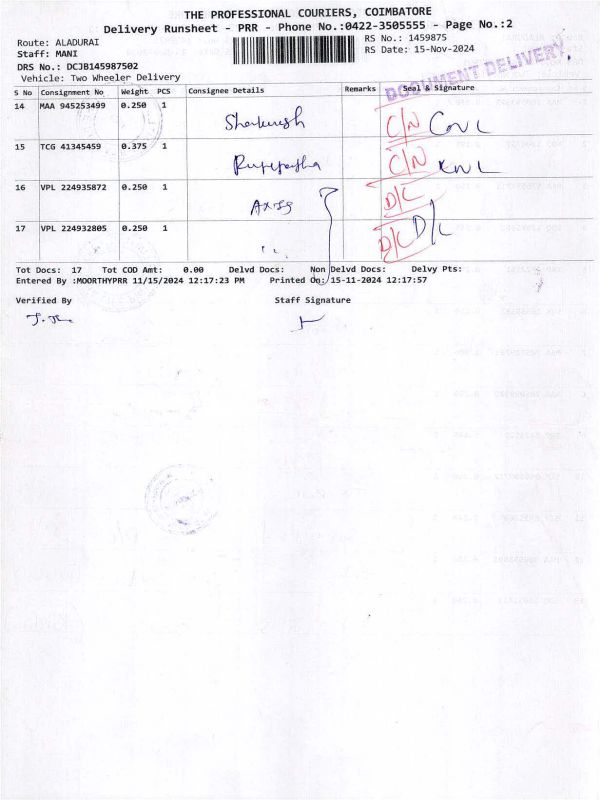 THE PROFESSIONAL COURIERS, COIMBATORE
Delivery Runsheet - PRR - Phone No.:0422-3505555 - Page No.:2
Route: ALADURAI
RS No.: 1459875
Staff: MANI
RS Date: 15-Nov-2024
DRS No.: DCJB145987502
Vehicle: Two Wheeler Delivery
DOCUMENT DELIVERY
S No Consignment No Weight PCS Consignee Details Remarks Seal & Signature
14 MAA 945253499 0.250 1 C/N
15 TCG 41345459 0.375 1 C/N
16 VPL 224935872 0.250 1 AXIS D/L
17 VPL 224932805 0.250 1 D/L D/L
Tot Docs: 17 Tot COD Amt: 0.00 Delvd Docs: Non Delvd Docs: Delvy Pts:
Entered By :MOORTHYPRR 11/15/2024 12:17:23 PM Printed On: 15-11-2024 12:17:57
Verified By Staff Signature